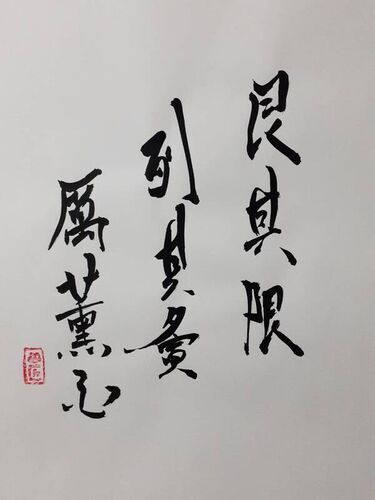 艮其限
列其夤
厲薰心